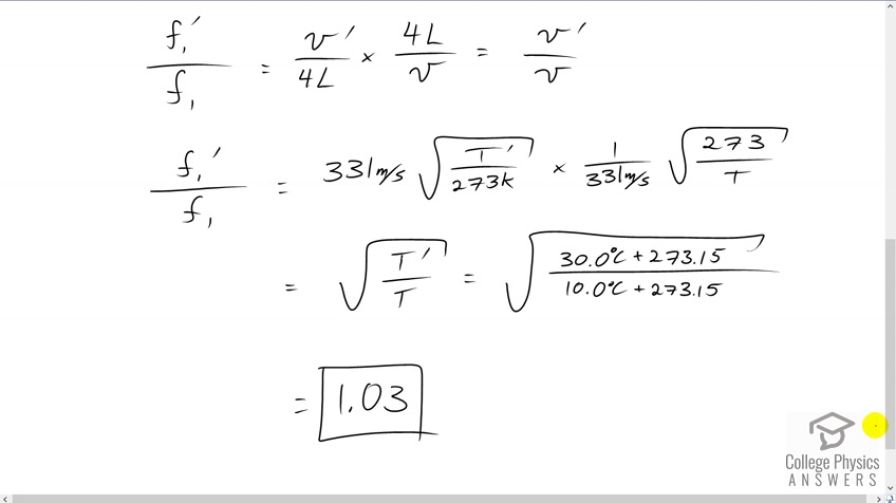 f₁′/f₁ = v′/4L × 4L/v = v′/v
f₁′/f₁ = 331m/s √(T′/273K) × 1/331m/s √(273/T)
= √(T′/T) = √((30.0°C + 273.15)/(10.0°C + 273.15))
= 1.03
College Physics
ANSWERS